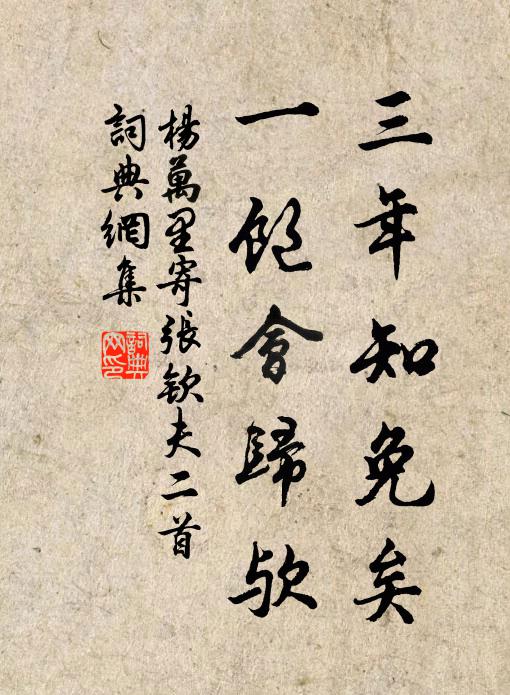 三年知免矣
一飽會歸歟
楊萬里寄張欽夫二首
詞典網集
詞典網印